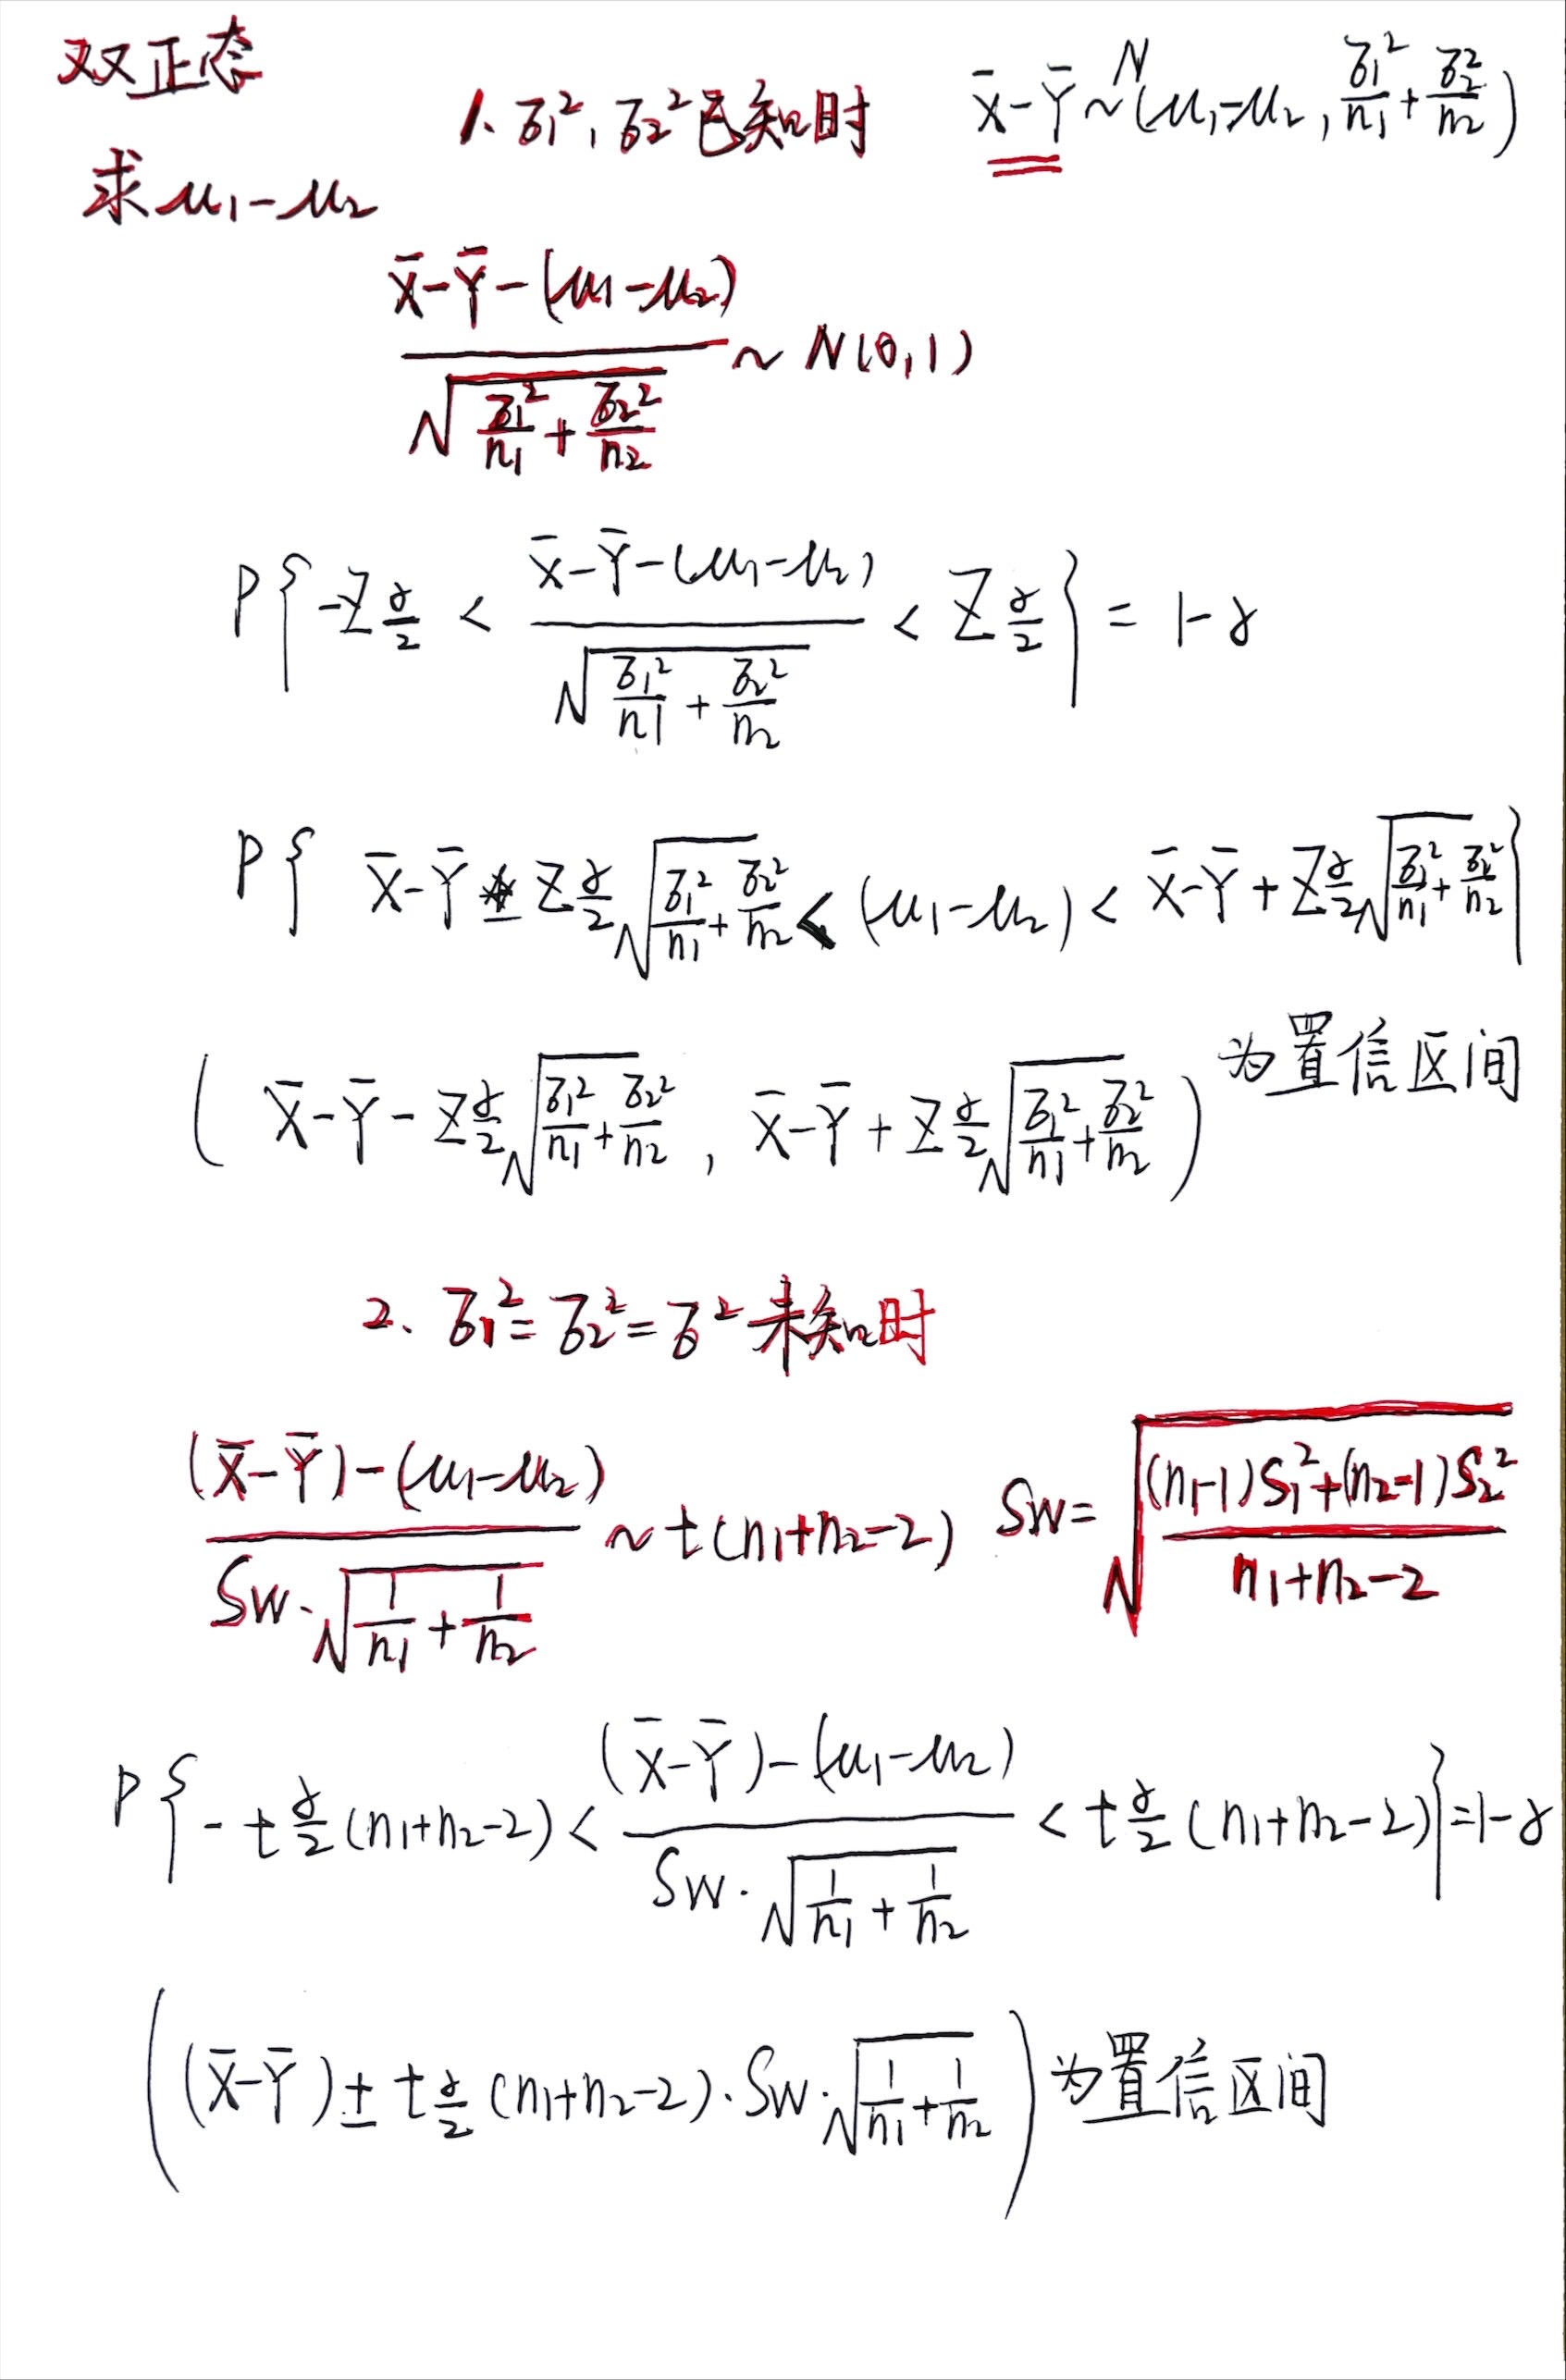 双正态
1. σ₁², σ₂² 已知时 X̄-Ȳ ~ N(μ₁-μ₂, σ₁²/n₁ + σ₂²/n₂)
求 μ₁-μ₂
(X̄-Ȳ-(μ₁-μ₂)) / √(σ₁²/n₁ + σ₂²/n₂) ~ N(0,1)
P{ -Z_{α/2} < (X̄-Ȳ-(μ₁-μ₂)) / √(σ₁²/n₁ + σ₂²/n₂) < Z_{α/2} } = 1-α
P{ X̄-Ȳ - Z_{α/2} √(σ₁²/n₁ + σ₂²/n₂) < (μ₁-μ₂) < X̄-Ȳ + Z_{α/2} √(σ₁²/n₁ + σ₂²/n₂) }
( X̄-Ȳ - Z_{α/2} √(σ₁²/n₁ + σ₂²/n₂) , X̄-Ȳ + Z_{α/2} √(σ₁²/n₁ + σ₂²/n₂) ) 为置信区间
2. σ₁² = σ₂² = σ² 未知时
((X̄-Ȳ)-(μ₁-μ₂)) / (Sw·√(1/n₁ + 1/n₂)) ~ t(n₁+n₂-2) Sw = √(((n₁-1)S₁²+(n₂-1)S₂²) / (n₁+n₂-2))
P{ -t_{α/2}(n₁+n₂-2) < ((X̄-Ȳ)-(μ₁-μ₂)) / (Sw·√(1/n₁ + 1/n₂)) < t_{α/2}(n₁+n₂-2) } = 1-α
( (X̄-Ȳ) ± t_{α/2}(n₁+n₂-2)·Sw·√(1/n₁ + 1/n₂) ) 为置信区间